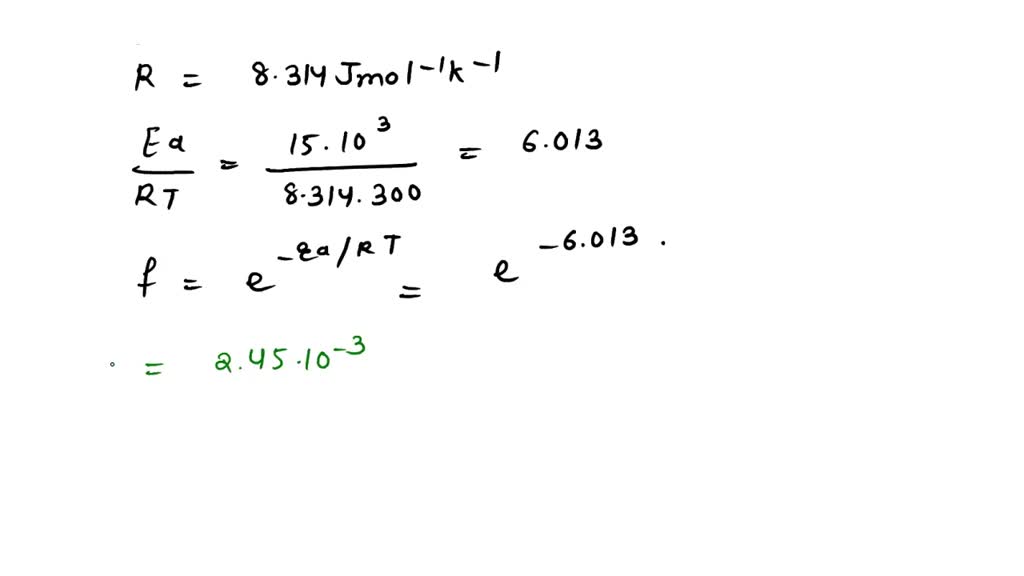 R = 8.314 Jmol-1k-1
Ea/RT = 15.10^3/8.314.300 = 6.013
f = e^-Ea/RT = e^-6.013.
= 2.45.10^-3